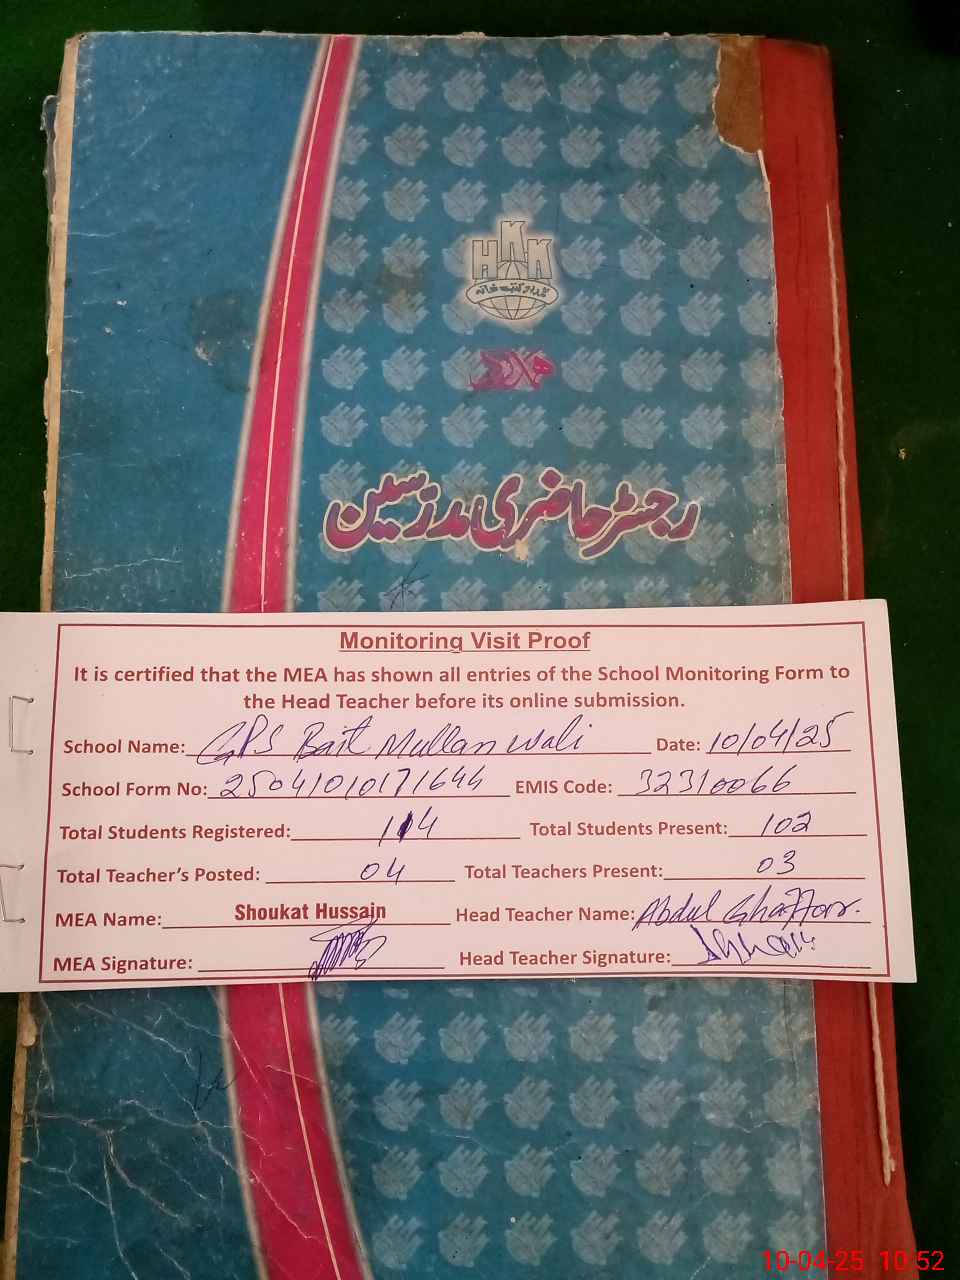 HKK
رجسٹر حاضری مدرسین
Monitoring Visit Proof
It is certified that the MEA has shown all entries of the School Monitoring Form to
the Head Teacher before its online submission.
School Name: GPS Bait Mullan Wali Date: 10/04/25
School Form No: 25041010171644 EMIS Code: 32310066
Total Students Registered: 114 Total Students Present: 102
Total Teacher's Posted: 04 Total Teachers Present: 03
MEA Name: Shoukat Hussain Head Teacher Name: Abdul Ghaffar.
MEA Signature: Head Teacher Signature:
10-04-25 10:52